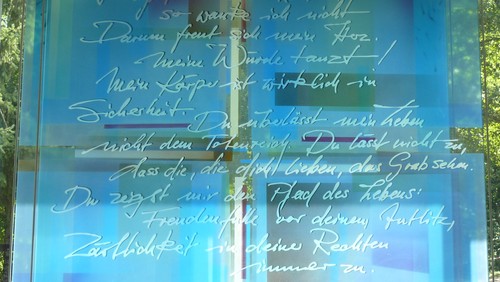 so wanke ich nicht
Darum freut sich mein Herz.
Meine Würde tanzt!
Mein Körper ist wirklich in
Sicherheit. Du überlässt mein Leben
nicht dem Totenreich. Du lässt nicht zu,
dass die, die dich lieben, das Grab sehen.
Du zeigst mir den Pfad des Lebens:
Freudenfülle vor deinem Antlitz,
Zärtlichkeit in deiner Rechten
immer zu.